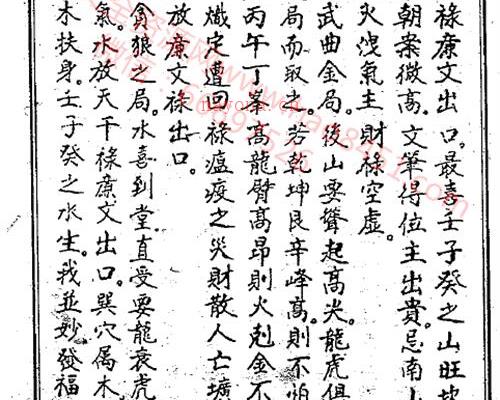 祿廉文出口。最喜壬子癸之山旺
朝案微高。文筆得位主出貴。忌南
火洩氣主財祿空虛。
武曲金局。後山要聳起高尖龍虎俱
局而取之。若乾坤艮辛峰高。則不怕
丙午丁峯高龍臂高昂則火剋金不
熾定遭回祿瘟疫之災財散人亡壙
放廉文祿出口。
貪狼之局。水喜到堂直受要龍衰虎
氣。水放天干祿廉文出口。巽穴屬木
木扶身。壬子癸之水生。我並妙發福